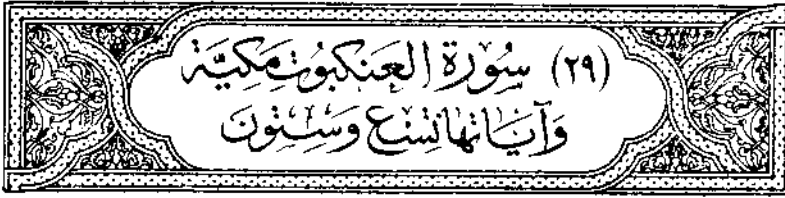 (٢٩) سُورَة العَنكبُوت مَكيَّة
وَآيَاتهَا تِسْع وَسِتّونَ